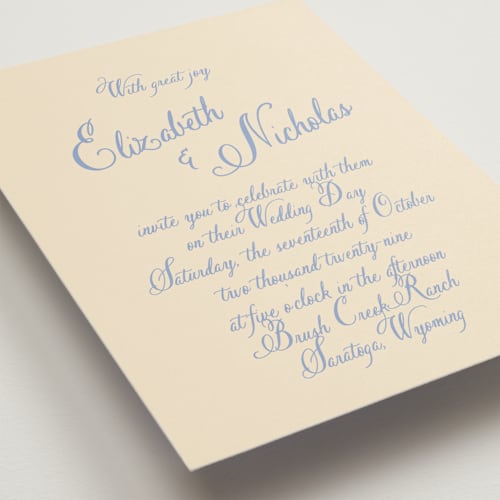 With great joy
Elizabeth
& Nicholas
invite you to celebrate with them
on their Wedding Day
Saturday, the seventeenth of October
two thousand twenty-nine
at five o'clock in the afternoon
Brush Creek Ranch
Saratoga, Wyoming